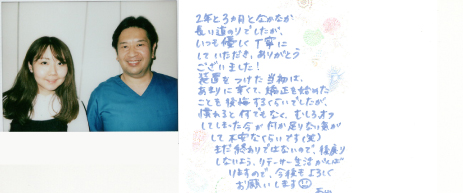 2年と3カ月となかなか
長い道のりでしたが、
いつも優しく丁寧に
していただき、ありがとう
ございました!
装置をつけた当初は、
あまりに痛くて、矯正を始めた
ことを後悔するくらいでしたが、
慣れると何でもなく、むしろオフ
してしまった今が何か足りない気が
して不安なくらいです(笑)
まだ終わりではないので、後戻り
しないよう、リテーナー生活がんば
りますので、今後もよろしく
お願いします